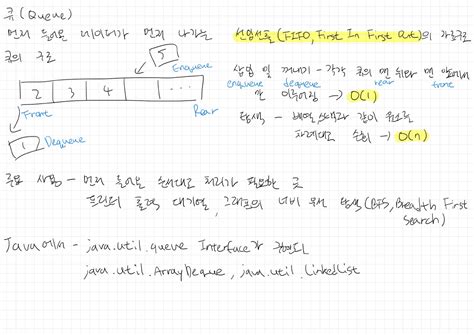 큐(Queue)
먼저 들어온 데이터가 먼저 나가는 선입선출(FIFO, First In First Out)의 자료구조
큐의 구조
5
Enqueue
2 3 4 ...
Front Rear
1 Dequeue
삽입 및 꺼내기 - 각각 큐의 맨 뒤와 맨 앞에서
enqueue dequeue rear front
만 이루어짐 → O(1)
탐색 - 배열, 스택과 같이 원소를
차례대로 순회 → O(n)
주요 사용 - 먼저 들어온 순서대로 처리가 필요한 곳
프린터 출력 대기열, 그래프의 너비 우선 탐색(BFS, Breadth First
Search)
Java에서 - java.util.queue Interface가 구현된
java.util.ArrayDeque, java.util.LinkedList